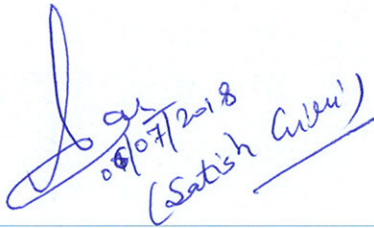 06/07/2018
(Satish Giri)